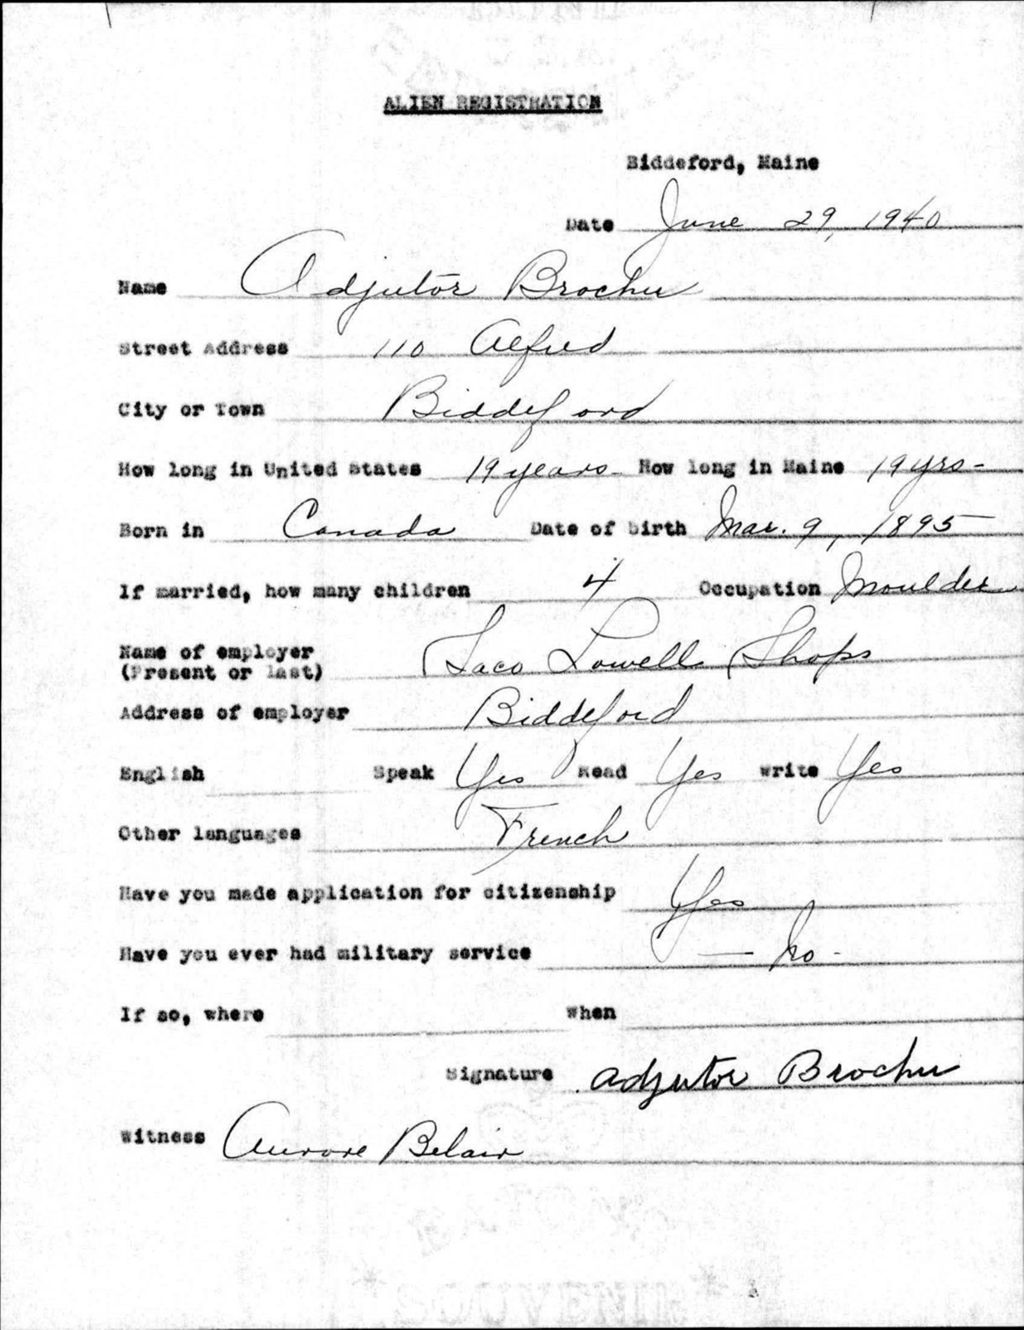 ALIEN REGISTRATION
Biddeford, Maine
Date June 29, 1940
Name Adjutor Brochu
Street Address 110 Alfred
City or Town Biddeford
How long in United States 19 years How long in Maine 19 yrs-
Born in Canada Date of birth Mar. 9, 1895
If married, how many children 4 Occupation Moulder
Name of employer
(Present or last) Saco Lowell Shops
Address of employer Biddeford
English Speak Yes Read Yes Write Yes
Other languages French
Have you made application for citizenship Yes
Have you ever had military service — No -
If so, where When
Signature Adjutor Brochu
Witness Aurore Belair